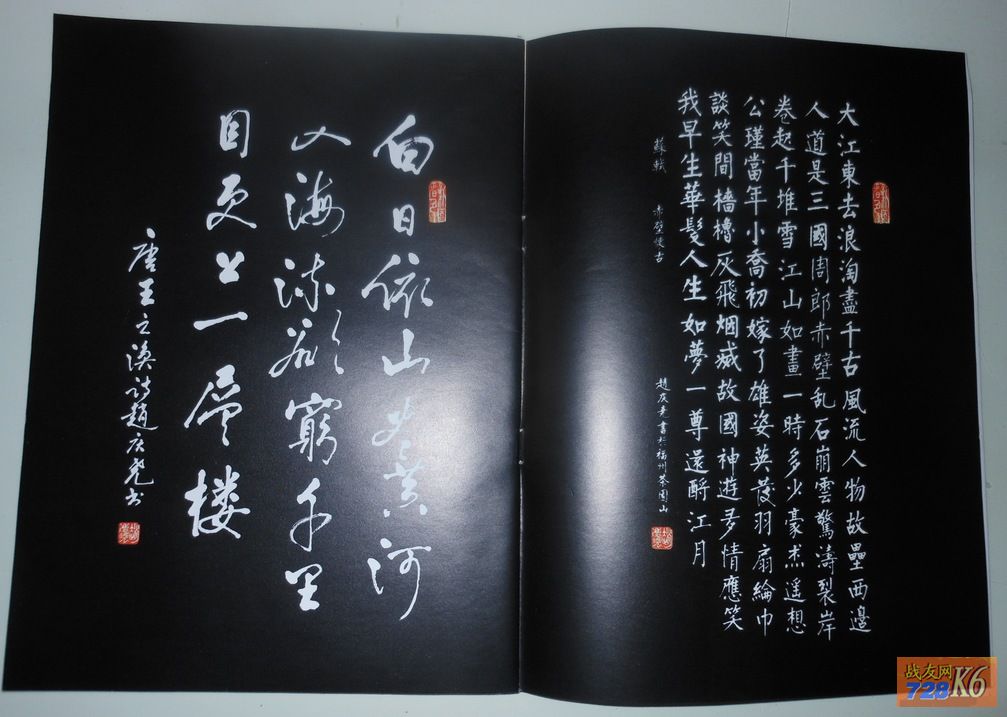 大江東去浪淘盡千古風流人物故壘西邊
人道是三國周郎赤壁乱石崩雲驚濤裂岸
卷起千堆雪江山如畫一時多少豪杰遥想
公瑾當年小喬初嫁了雄姿英發羽扇綸巾
談笑間檣櫓灰飛烟滅故國神遊多情應笑
我早生華髮人生如夢一尊還酹江月
蘇軾 赤壁懷古 趙庆尭書於福州茶園山
白日依山尽黄河
入海流欲窮千里
目更上一层楼
唐王之涣诗趙庆尭书
战友网
728 K6